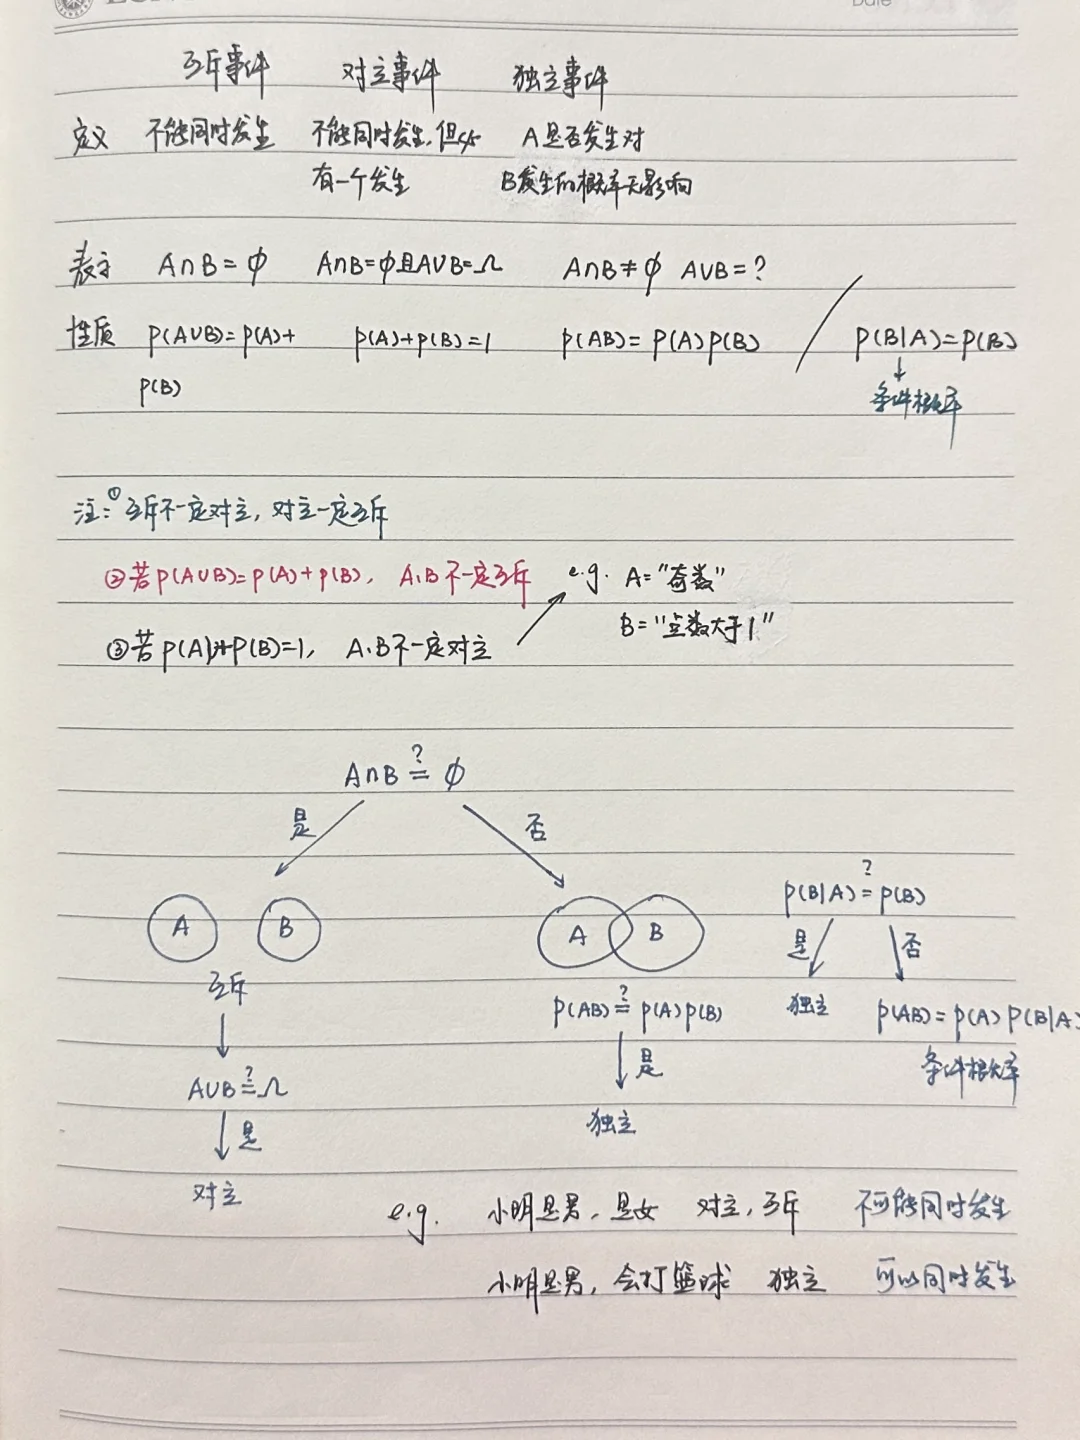 Date
互斥事件 对立事件 独立事件
定义 不能同时发生 不能同时发生,但必 A是否发生对
有一个发生 B发生的概率无影响
表示 A∩B=∅ A∩B=∅且A∪B=Ω A∩B≠∅ A∪B=?
性质 P(A∪B)=P(A)+ P(A)+P(B)=1 P(AB)=P(A)P(B) / P(B|A)=P(B)
P(B) ↓
条件概率
注:①互斥不一定对立,对立一定互斥
②若P(A∪B)=P(A)+P(B), A.B不一定互斥 e.g. A="奇数"
B="点数大于1"
③若P(A)+P(B)=1, A.B不一定对立
A∩B ?= ∅
是 否
P(B|A) ?= P(B)
A B A B 是 否
互斥
P(AB) ?= P(A)P(B) 独立 P(AB)=P(A)P(B|A)
是 条件概率
A∪B ?= Ω
独立
是
对立
e.g. 小明是男,是女 对立,互斥 不可能同时发生
小明是男,会打篮球 独立 可以同时发生